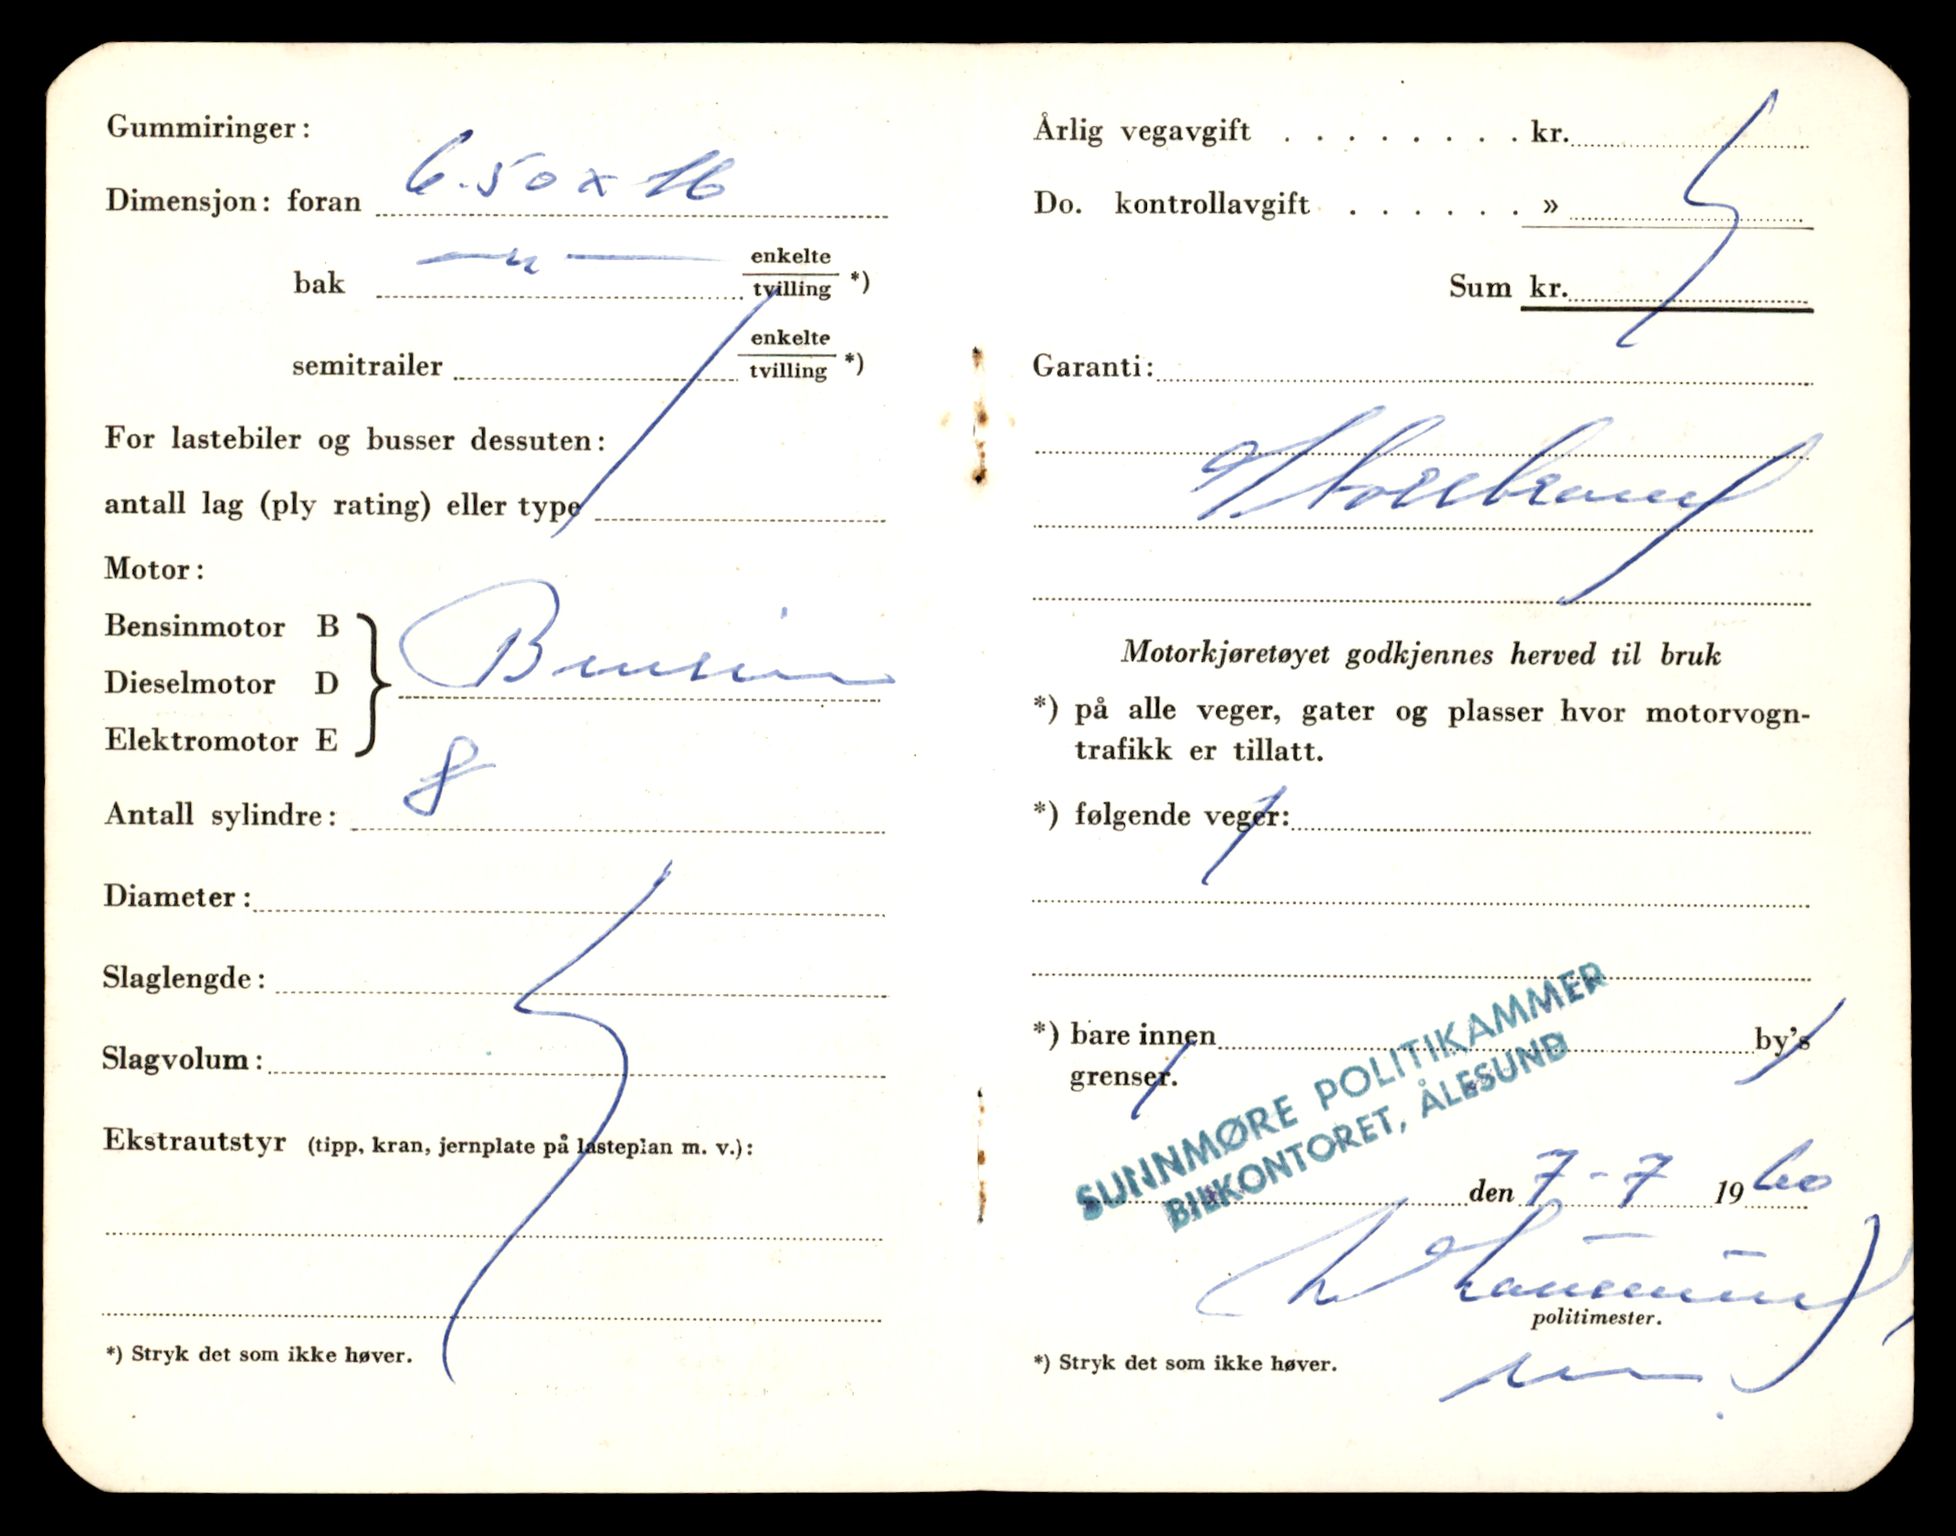 Gummiringer:
Dimensjon: foran 6.50 x 16
bak — " — enkelte
tvilling *)
semitrailer enkelte
tvilling *)
For lastebiler og busser dessuten:
antall lag (ply rating) eller type
Motor:
Bensinmotor B
Dieselmotor D
Elektromotor E
Bensin
Antall sylindre: 8
Diameter:
Slaglengde:
Slagvolum:
Ekstrautstyr (tipp, kran, jernplate på lasteplan m. v.):
*) Stryk det som ikke høver.
Årlig vegavgift . . . . . . . . kr.
Do. kontrollavgift . . . . . . »
Sum kr.
Garanti:
Storebrand
Motorkjøretøyet godkjennes herved til bruk
*) på alle veger, gater og plasser hvor motorvogn-
trafikk er tillatt.
*) følgende veger:
*) bare innen by's
grenser.
SUNNMØRE POLITIKAMMER
BILKONTORET, ÅLESUND
den 7-7 1960
politimester.
*) Stryk det som ikke høver.